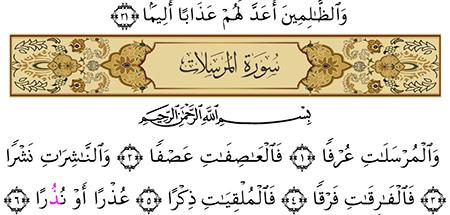 وَٱلظَّٰلِمِينَ أَعَدَّ لَهُمْ عَذَابًا أَلِيمًۢا ﴿٣١﴾
سُورَةُ المُرْسَلَات
بِسْمِ ٱللَّهِ ٱلرَّحْمَٰنِ ٱلرَّحِيمِ
وَٱلْمُرْسَلَٰتِ عُرْفًا ﴿١﴾ فَٱلْعَٰصِفَٰتِ عَصْفًا ﴿٢﴾ وَٱلنَّٰشِرَٰتِ نَشْرًا
﴿٣﴾ فَٱلْفَٰرِقَٰتِ فَرْقًا ﴿٤﴾ فَٱلْمُلْقِيَٰتِ ذِكْرًا ﴿٥﴾ عُذْرًا أَوْ نُذُرًا ﴿٦﴾